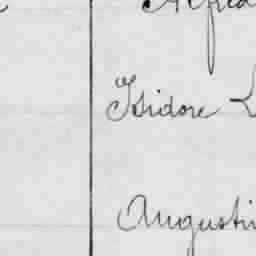 Alfred
Isidore L
Augustin